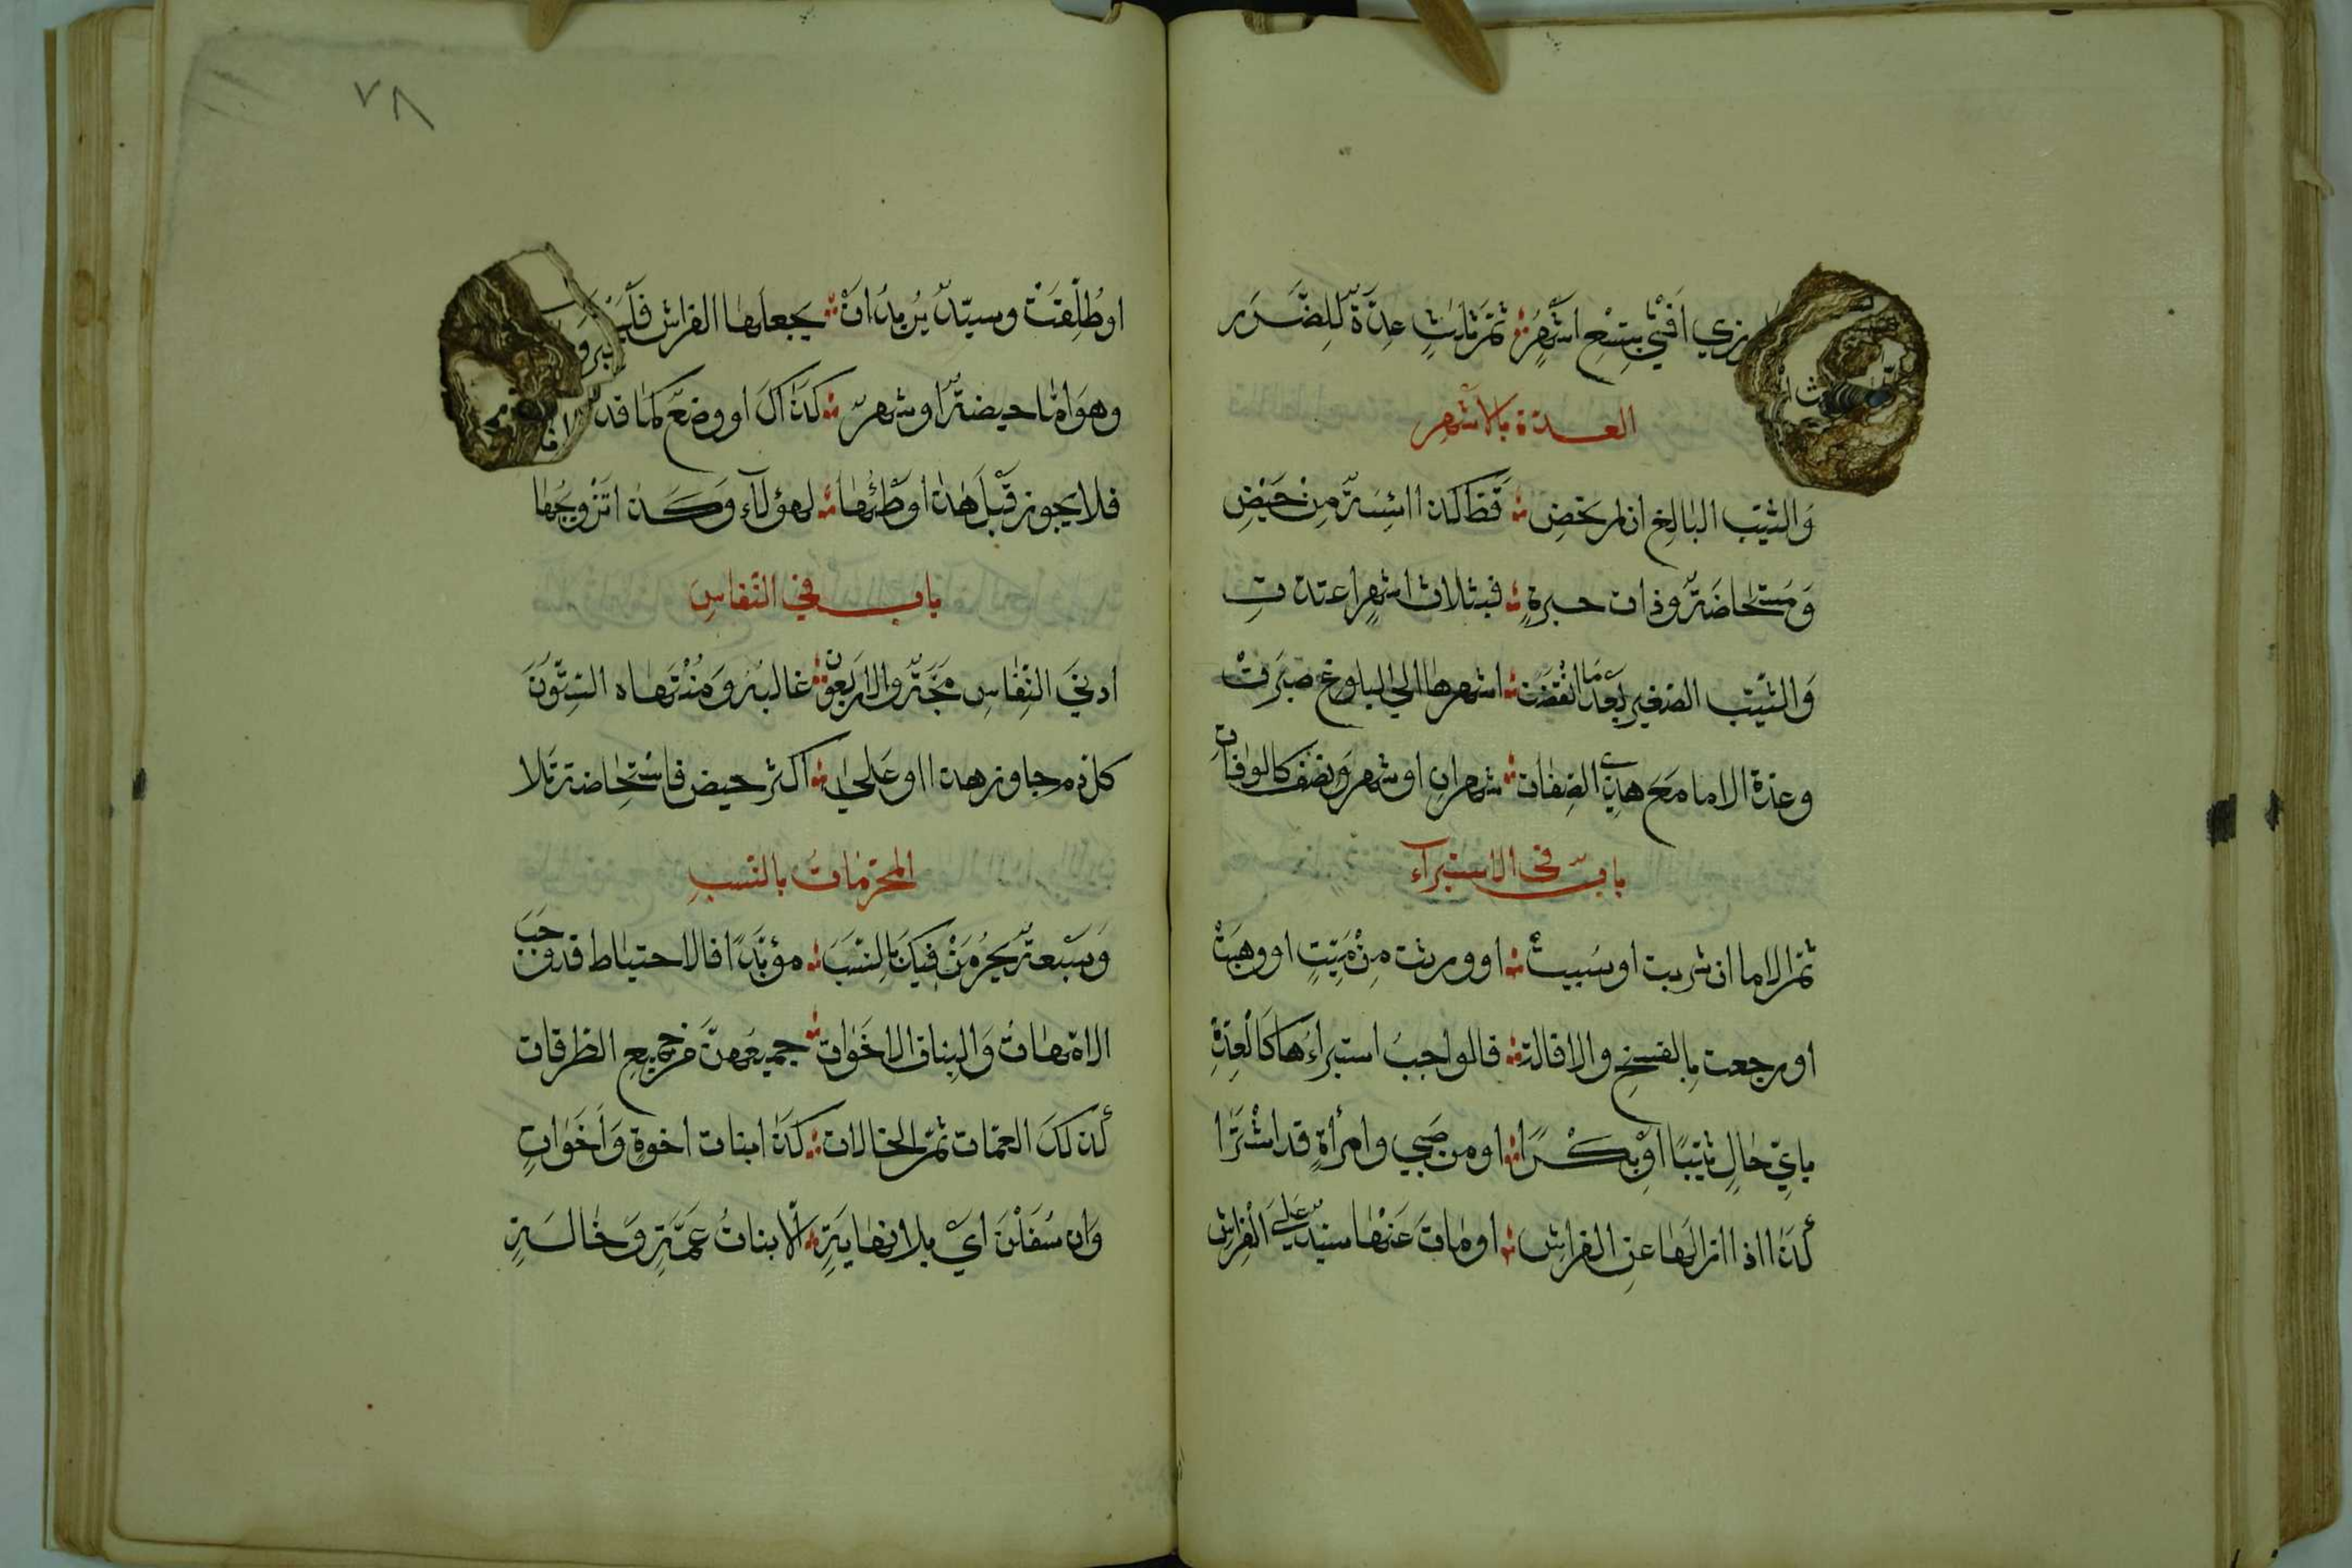 زي افتى بتسع اشهر ثم ثلاث عدة للضرر
العدة بالاشهر
والثيب البالغ ان لم تحض قط كذا ائسة من حيض
ومستحاضة وذات حيرة فبثلاث اشهر اعتدت
والثيب الصغير بعدما انقضت اشهرها الي البلوغ صبرت
وعدة الاما مع هذي الصفات شهران او شهر ونصف كالوفات
باب في الاستبراء
ثم الاما ان شريت او سبيت او ورثت من ميت او وهبت
او رجعت بالفسخ والاقالة فالواجب استبراءها كالعدة
باي حال ثيبا او بكرا او من صبي وامرأة قد اشترا
كذا اذا ازالها عن الفراش او مات عنها سيد علي الفراش
٧٨
او طلقت وسيد يريد ان يجعلها الفراش
وهو اما حيضة او شهر كذاك او وضع كما قد
فلا يجوز قبل هذا وطئها لهؤلاء وكذا تزويجها
باب في النفاس
ادني النفاس مجة والاربعون غالبه ومنتهاه الستون
كل دم جاوز هذا او علي اكثر حيض فاستحاضة تلا
المحرمات بالنسب
وسبعة يحرمن فيك بالنسب مؤبدا فالاحتياط قد وجب
الامهات والبنات الاخوات جميعهن من جميع الطرقات
كذلك العمات ثم الخالات كذا بنات اخوة واخوات
وان سفلن اي بلا نهاية الا بنات عمة وخالة